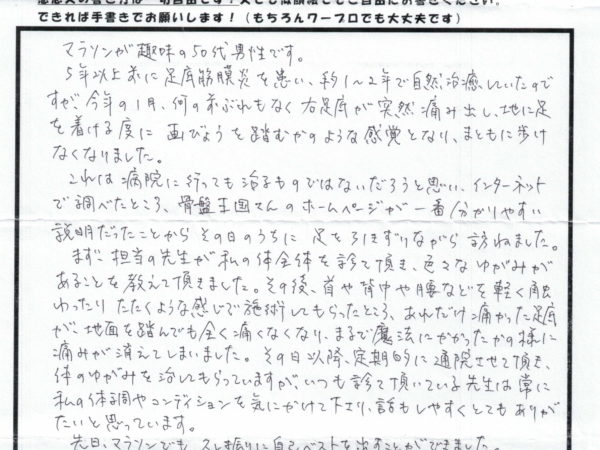 できれば手書きでお願いします！(もちろんワープロでも大丈夫です)
マラソンが趣味の50代男性です。
5年以上前に足底筋膜炎を患い、約1～2年で自然治癒していたので
すが、今年の1月、何の前ぶれもなく右足底が突然痛み出し、地に足
を着ける度に画びょうを踏むかのような感覚となり、まともに歩け
なくなりました。
これは病院に行っても治るものではないだろうと思い、インターネット
で調べたところ、骨盤王国さんのホームページが一番分かりやすい
説明だったことからその日のうちに足を引きずりながら訪ねました。
まず、担当の先生が私の体全体を診て頂き、色々なゆがみが
あることを教えて頂きました。その後、首や背中や腰などを軽く触
わったりたたくような感じで施術してもらったところ、あれだけ痛かった足底
が、地面を踏んでも全く痛くなくなり、まるで魔法にかかったかの様に
痛みが消えてしまいました。その日以降、定期的に通院させて頂き、
体のゆがみを治してもらっていますが、いつも診て頂いている先生は常に
私の体調やコンディションを気にかけて下さり、話もしやすくとてもありが
たいと思っています。
先日、マラソンでも久し振りに自己ベストを出すことができました。